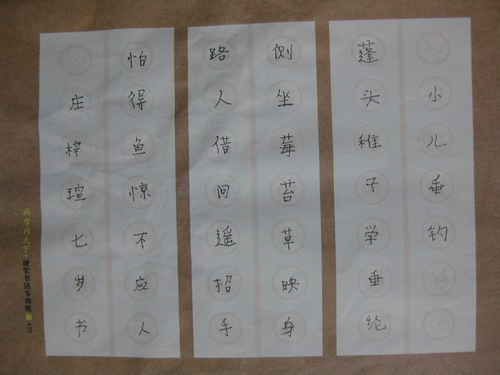 小儿垂钓
蓬头稚子学垂纶
侧坐莓苔草映身
路人借问遥招手
怕得鱼惊不应人
庄梓瑄七岁书
硬笔书法专用